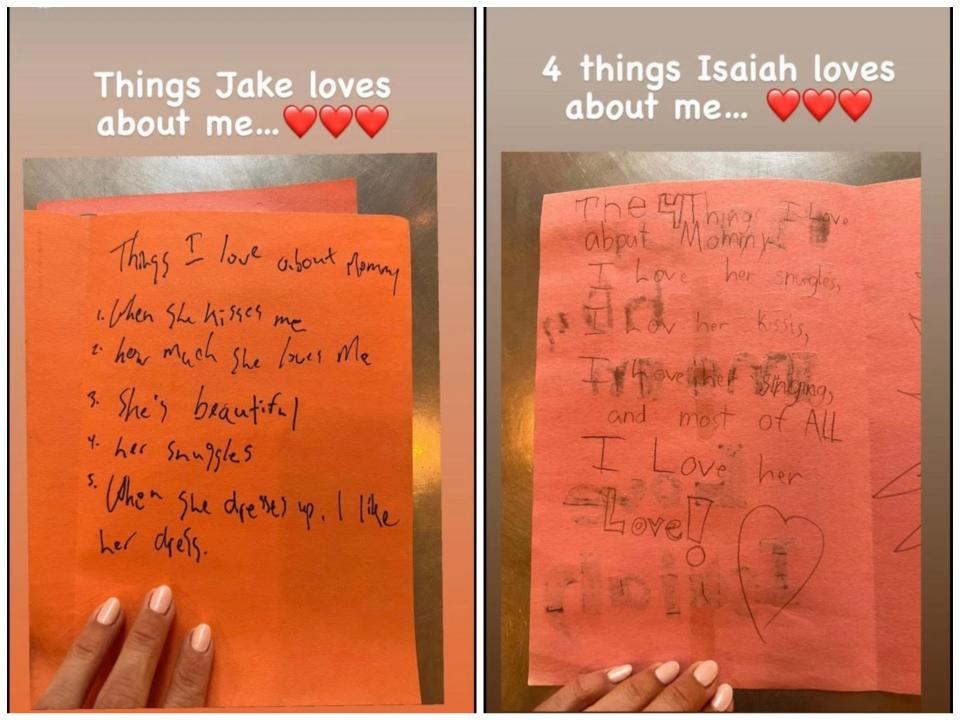 Things Jake loves
about me...❤️❤️❤️
Things I love about Mommy
1. When she kisses me
2. how much she loves Me
3. She's beautiful
4. her snuggles
5. When she dresses up, I like
her dress.
4 things Isaiah loves
about me... ❤️❤️❤️
The 4 Things I Love
about Mommy
I Love her snugles,
I Lov her kissis,
I Love her singing,
and most of ALL
I Love her
Love!
Isaiah